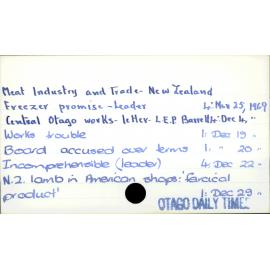 Meat Industry and Trade - New Zealand
Freezer promise - Leader 4: Mar 25, 1969
Central Otago works - letter - L.E.P. Barrell 4: Dec 4, "
Works trouble 1: Dec 19 "
Board accused over terms 1: " 20 "
Incomprehensible (leader) 4: Dec 22 "
N.Z. lamb in American shops: 'farcical
product' 1: Dec 29 "
OTAGO DAILY TIMES